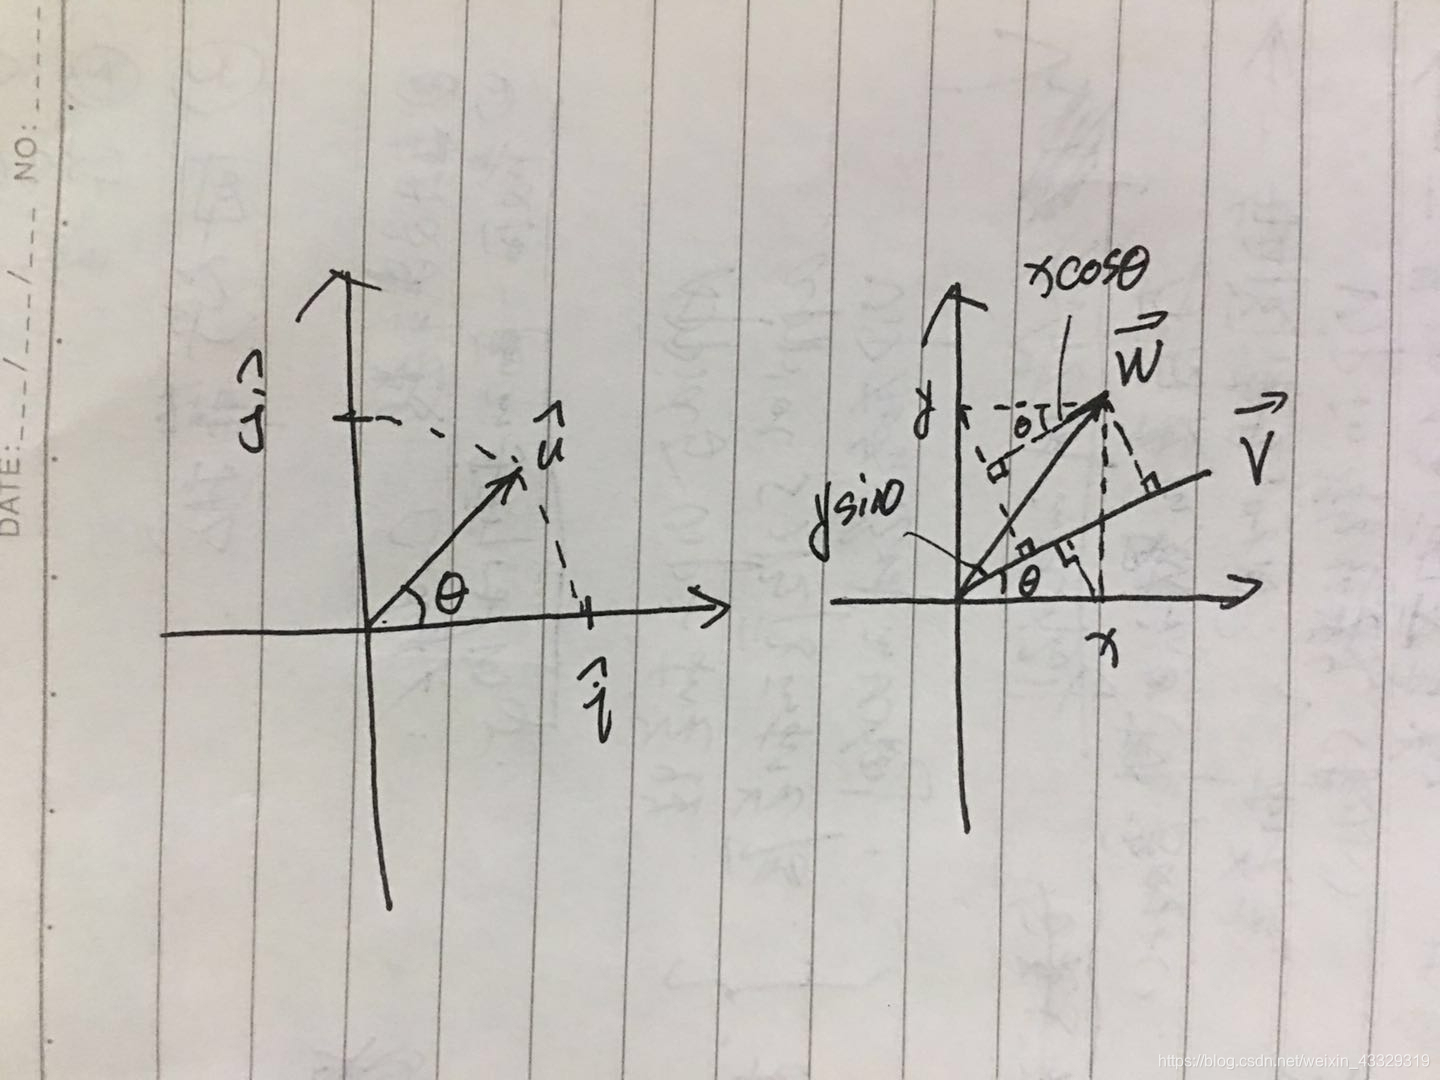 DATE:___/___/___ NO:
ĵ
û
θ
î
x cosθ
→W
y
θ
→V
y sinθ
θ
x
https://blog.csdn.net/weixin_43329319